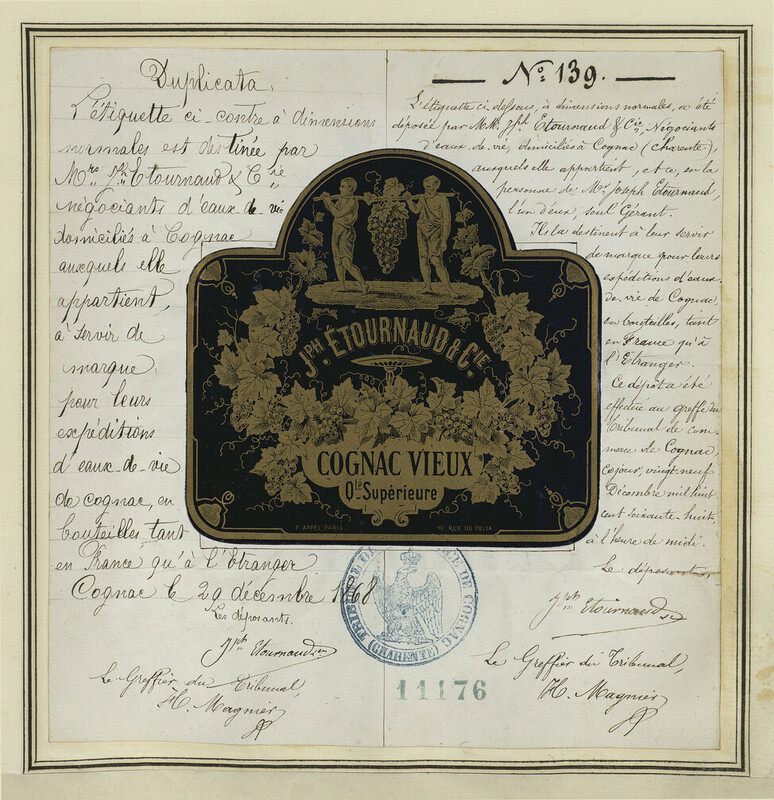 Duplicata.
L'étiquette ci-contre à dimensions
normales est destinée par
Mrs Jph Etournaud & Cie
négociants d'eaux-de-vie
domiciliés à Cognac
auxquels elle
appartient,
à servir de
marque
pour leurs
expéditions
d'eaux-de-vie
de cognac, en
bouteilles tant
en France qu'à l'Etranger
Cognac le 29 décembre 1868
Les déposants.
Jph Etournaud
Le Greffier du Tribunal,
H. Magnier
No 139.
L'étiquette ci-dessous, à dimensions normales, a été
déposée par M.M. Jph Etournaud & Cie, Négociants
d'eaux-de-vie, domiciliés à Cognac (Charente),
auxquels elle appartient, et ce, en la
personne de Mr Joseph Etournaud,
l'un d'eux, seul Gérant.
Ils la destinent à leur servir
de marque pour leurs
expéditions d'eaux-
de-vie de Cognac,
en bouteilles, tant
en France qu'à
l'Etranger.
Ce dépôt a été
effectué au greffe du
Tribunal de Com-
merce de Cognac,
ce jour, vingt-neuf
Décembre mil huit
cent soixante-huit,
à l'heure de midi.
Le déposant,
Jph Etournaud
Le Greffier du Tribunal,
H. Magnier
JPH. ÉTOURNAUD & CIE
COGNAC VIEUX
Qté Supérieure
F. APPEL PARIS.
12, RUE DU DELTA
TRIBUNAL DE COMMERCE DE COGNAC
(CHARENTE)
11176